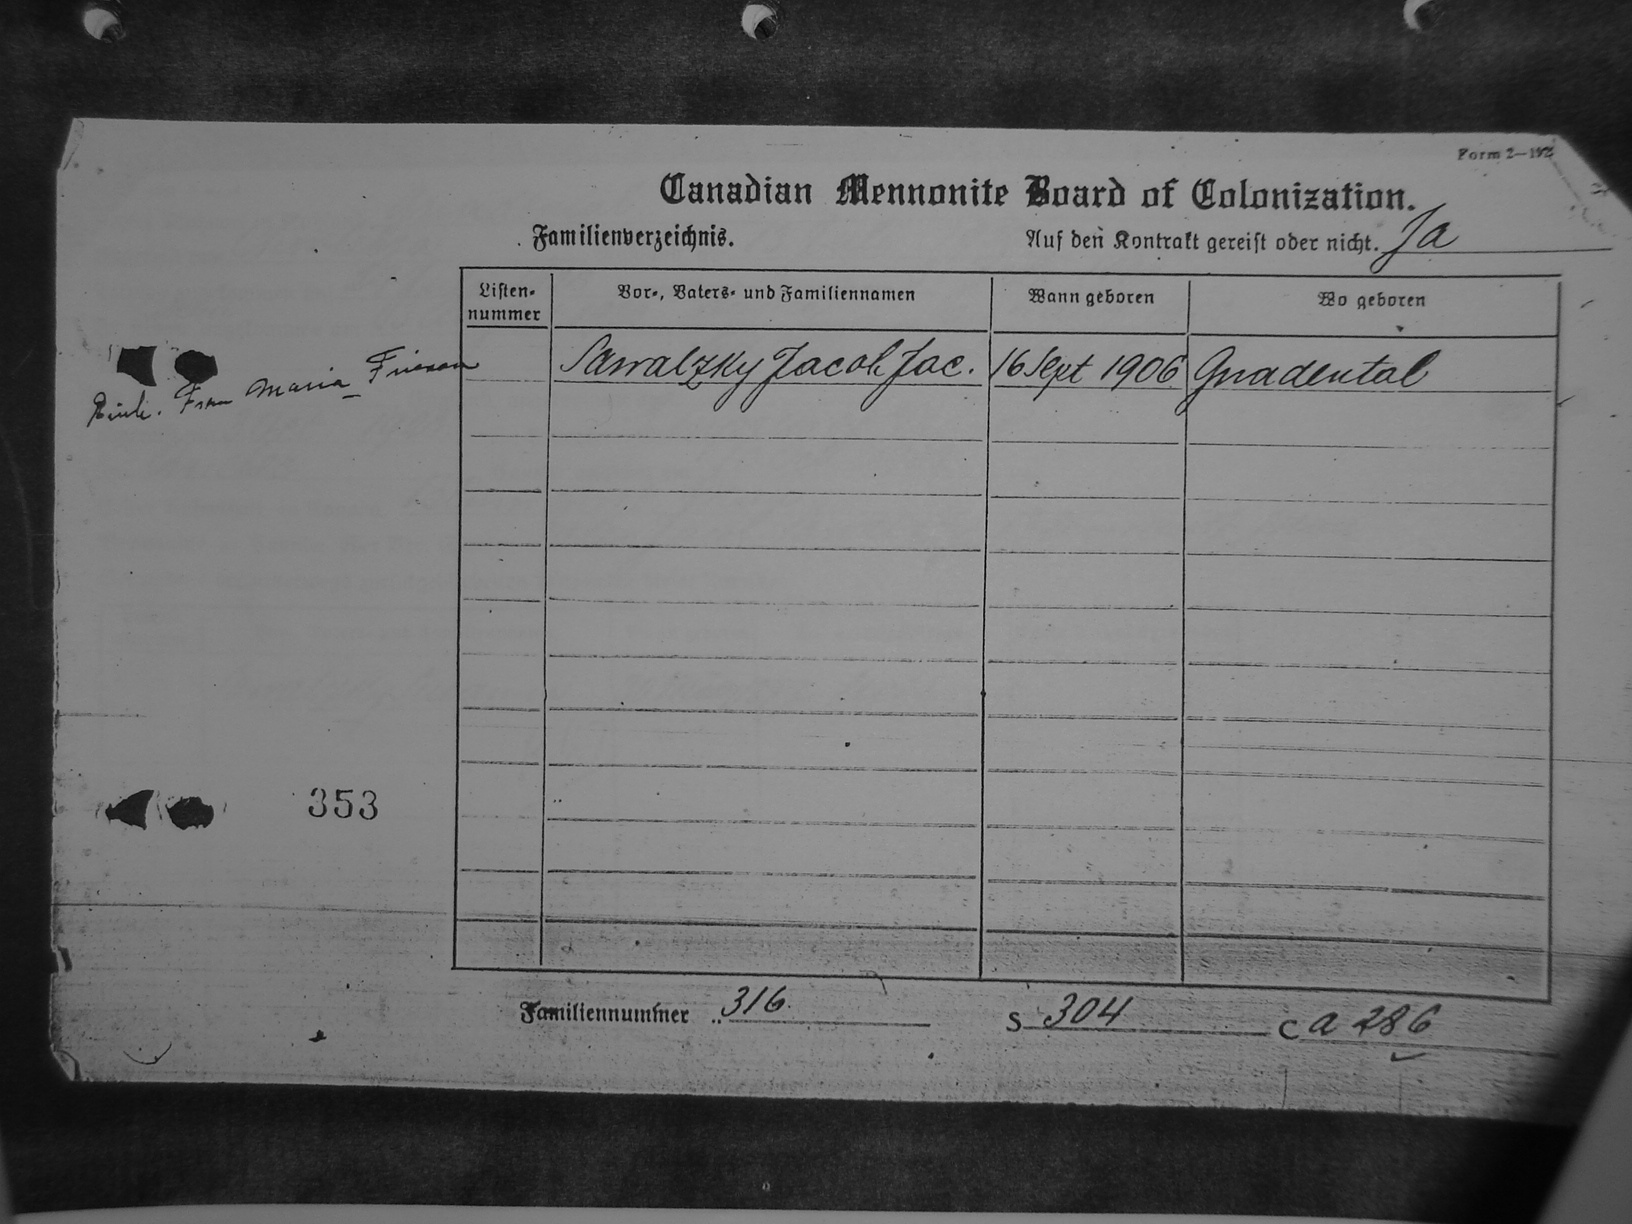 Form 2—192
Canadian Mennonite Board of Colonization.
Familienverzeichnis.
Auf den Kontrakt gereist oder nicht. Ja
Listen-
nummer
Vor-, Vaters- und Familiennamen
Wann geboren
Wo geboren
Sawatzky Jacob Jac. 16 Sept 1906 Gnadental
Frau Maria Friesen
353
Familiennummer 316.
S 304
C a 286